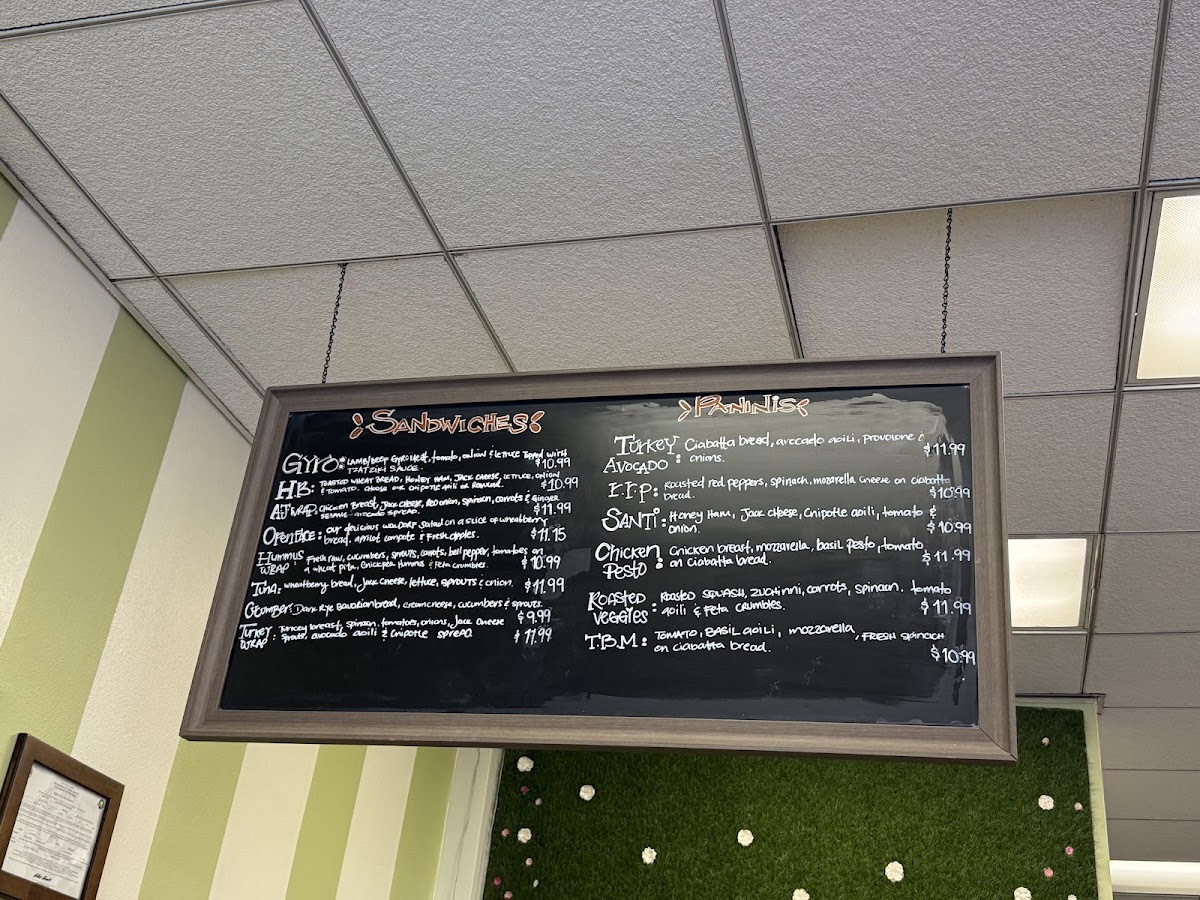 SANDWICHES
GYRO: LAMB/BEEF GYRO MEAT, tomato, onion & LETTUCE TOPPED WITH
TZATZIKI SAUCE. $10.99
HB: TOASTED WHEAT BREAD, HONEY HAM, JACK CHEESE, LETTUCE, ONION
& TOMATO. CHOOSE OUR CHIPOTLE AOILI OR $10.99
AJ WRAP: CHICKEN BREAST, JACK CHEESE, RED ONION, SPINACH, CARROTS & GINGER
SESAME-AVOCADO SPREAD. $11.99
OPENFACE: our delicious WALDORF Salad on a SLICE OF wheatberry
bread, apricot compote & Fresh apples. $11.15
HUMMUS WRAP: Fresh raw, cucumbers, sprouts, carrots, bell pepper, tomatoes on
a wheat pita, chickpea Hummus & Feta Crumbles. $10.99
TUNA: wheatberry bread, Jack Cheese, lettuce, sprouts & onion. $11.99
Dark Rye Bavarian bread, creamcheese, cucumbers & sprouts.
$9.99
TURKEY WRAP: Turkey breast, spinach, tomatoes, onions, Jack Cheese
Sprouts, avocado aoili & chipotle spread. $11.99
PANINIS
TURKEY AVOCADO: Ciabatta bread, avocado aoili, Provolone &
onions. $11.99
Roasted red peppers, spinach, mozarella cheese on ciabatta
bread. $10.99
SANTI: Honey Ham, Jack cheese, Chipotle aoili, tomato &
onion. $10.99
Chicken Pesto: Chicken breast, mozzarella, basil pesto, tomato
on ciabatta bread. $11.99
ROASTED VEGGIES: Roasted SQUASH, ZUCHINNI, carrots, spinach. tomato
aoili & Feta crumbles. $11.99
T.B.M: TOMATO, BASIL aoili, mozzarella, FRESH SPINACH
on ciabatta bread. $10.99